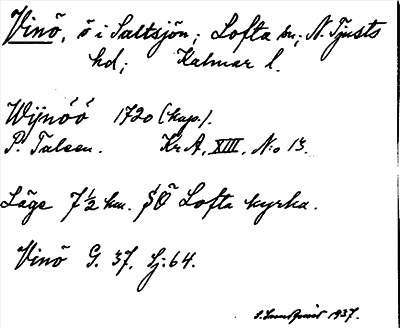 Vinö, ö i Saltsjön; Lofta sn; N. Tjusts
hd; Kalmar l.
Wijnöö 1720 (kop.).
P. Talsen. KrA, XIII, N:o 13.
Läge 7½ km. SO Lofta kyrka.
Vinö G. 37, Sj: 64.
1937.